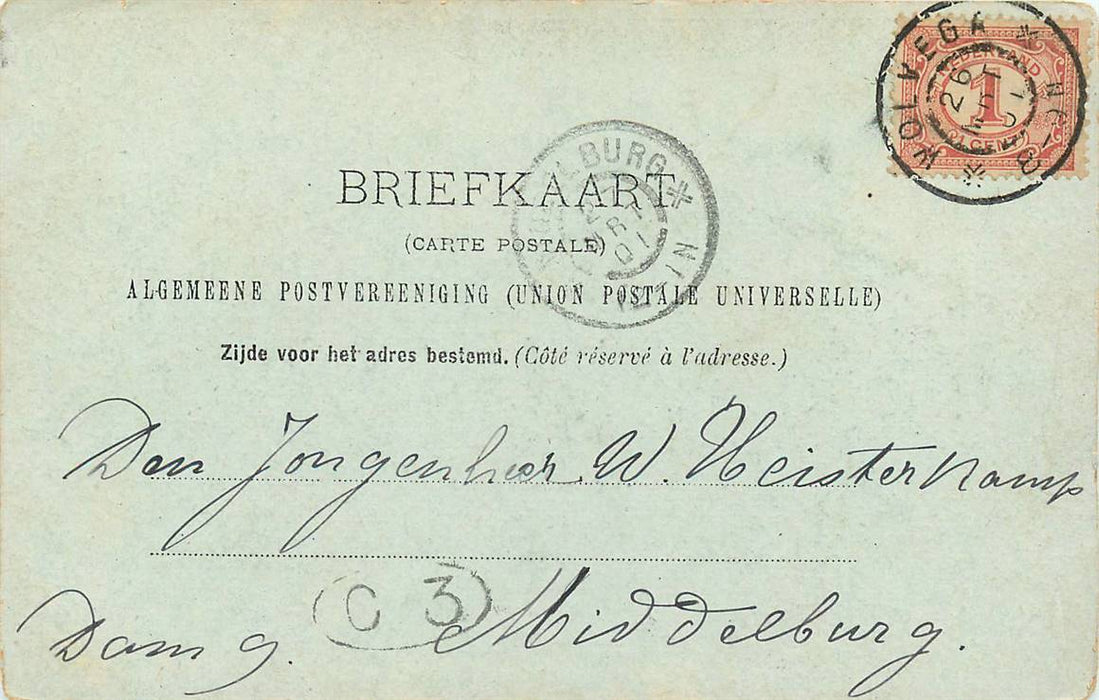 WOLVEGA
26
NEDERLAND
1
CENT
BRIEFKAART
(CARTE POSTALE)
ALGEMEENE POSTVEREENIGING (UNION POSTALE UNIVERSELLE)
Zijde voor het adres bestemd. (Côté réservé à l'adresse.)
MRT
01
Den Jongenheer W. Heisterkamp
C 3
Dam 9. Middelburg.